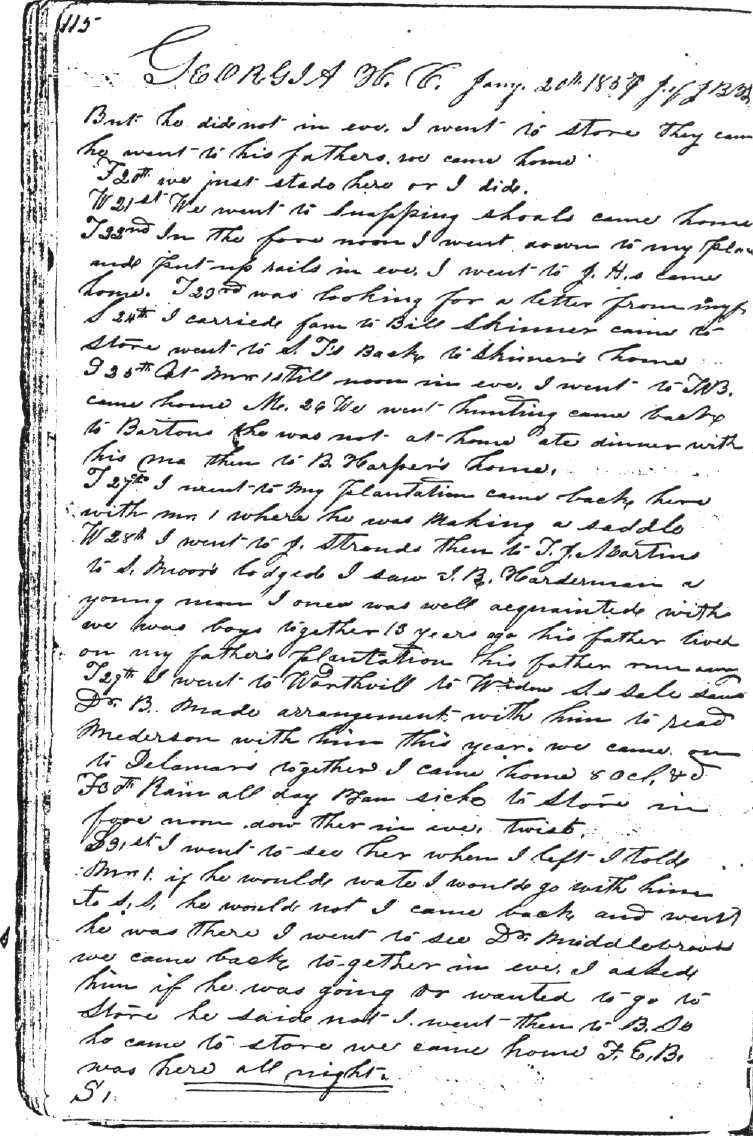 115
GEORGIA H. C. Jany. 20th 1857 J. of J B
But he did not in eve. I went to store they came
he went to his fathers. we came home
T 20th we just stade here or I did.
W 21st We went to Snapping shoals came home
T 22nd In the fore noon I went down to my plan
and put up rails in eve. I went to J. H.s came
home. T 23rd was looking for a letter from
S 24th I carried fam to Bill Skinner came to
store went to S. T's Back to Skinner's home
S 25th At Mr. 1 still noon in eve. I went to T W B.
came home M. 26 We went hunting came back
to Bartons he was not at home ate dinner with
his ma then to B. Harper's home.
T 27th I went to my plantation came back here
with mr. 1 where he was making a saddle
W 28th I went to J. Strouds then to T. J. Martins
to S. Moors lodged I saw J. B. Harderman a
young man I once was well acquainted with
we was boys together 13 years ago his father lived
on my father's plantation his father run away
T 29th I went to Worthvill to Widow S.s sale saw
Dr. B. Made arrangement with him to read
Mederson with him this year. we came on
to Delamars together I came home 8 Ocl, & d
F 30th Rain all day Bam sick to store in
fore noon. dow ther in eve. twist.
S 31st I went to see her when I left I told
Mr 1. if he would wate I would go with him
to S, S, he would not I came back and went
he was there I went to see Dr. Middlebrooks
we came back to-gether in eve. I asked
him if he was going or wanted to go to
store he said not I went then to B. So
he came to store we came home F. E. B.
was here all night.
S,